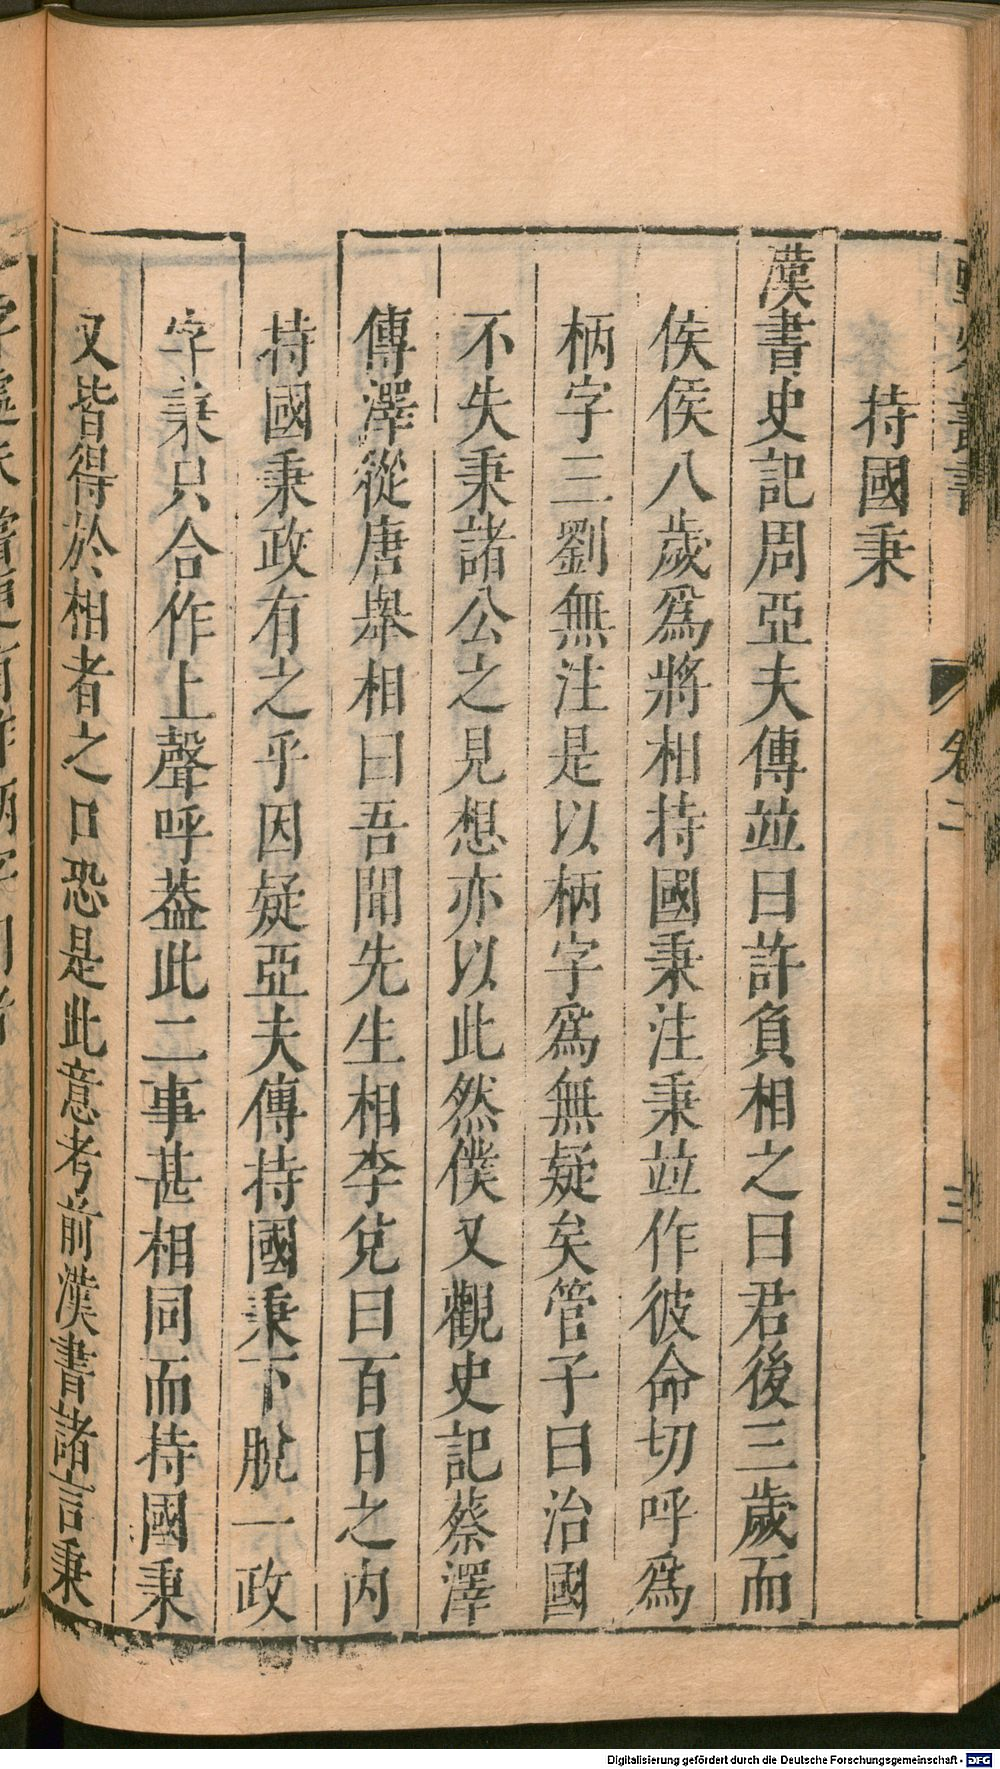 叢書
卷二
三
持國秉
漢書史記周亞夫傳並曰許負相之曰君後三歲而
侯侯八歲爲將相持國秉注秉並作彼命切呼爲
柄字三劉無注是以柄字爲無疑矣管子曰治國
不失秉諸公之見想亦以此然僕又觀史記蔡澤
傳澤從唐舉相曰吾聞先生相李兌曰百日之內
持國秉政有之乎因疑亞夫傳持國秉下脫一政
字秉只合作上聲呼葢此二事甚相同而持國秉
又皆得於相者之口恐是此意考前漢書諸言秉
Digitalisierung gefördert durch die Deutsche Forschungsgemeinschaft - DFG